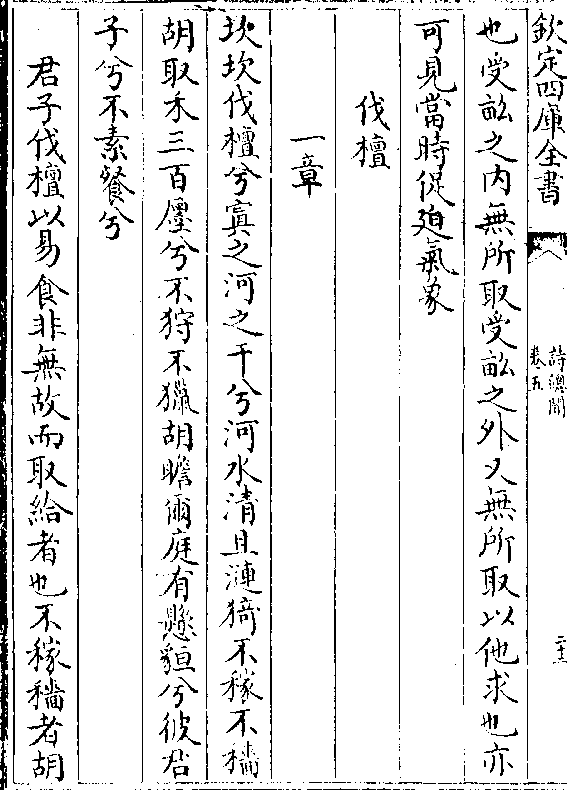 欽定四庫全書
詩總聞
卷五
也受畝之内無所取受畝之外又無所取以他求也亦
可見當時促廹氣象
伐檀
一章
坎坎伐檀兮寘之河之干兮河水清且漣猗不稼不穡
胡取禾三百廛兮不狩不獵胡瞻爾庭有懸貆兮彼君
子兮不素餐兮
君子伐檀以易食非無故而取給者也不稼穡者胡